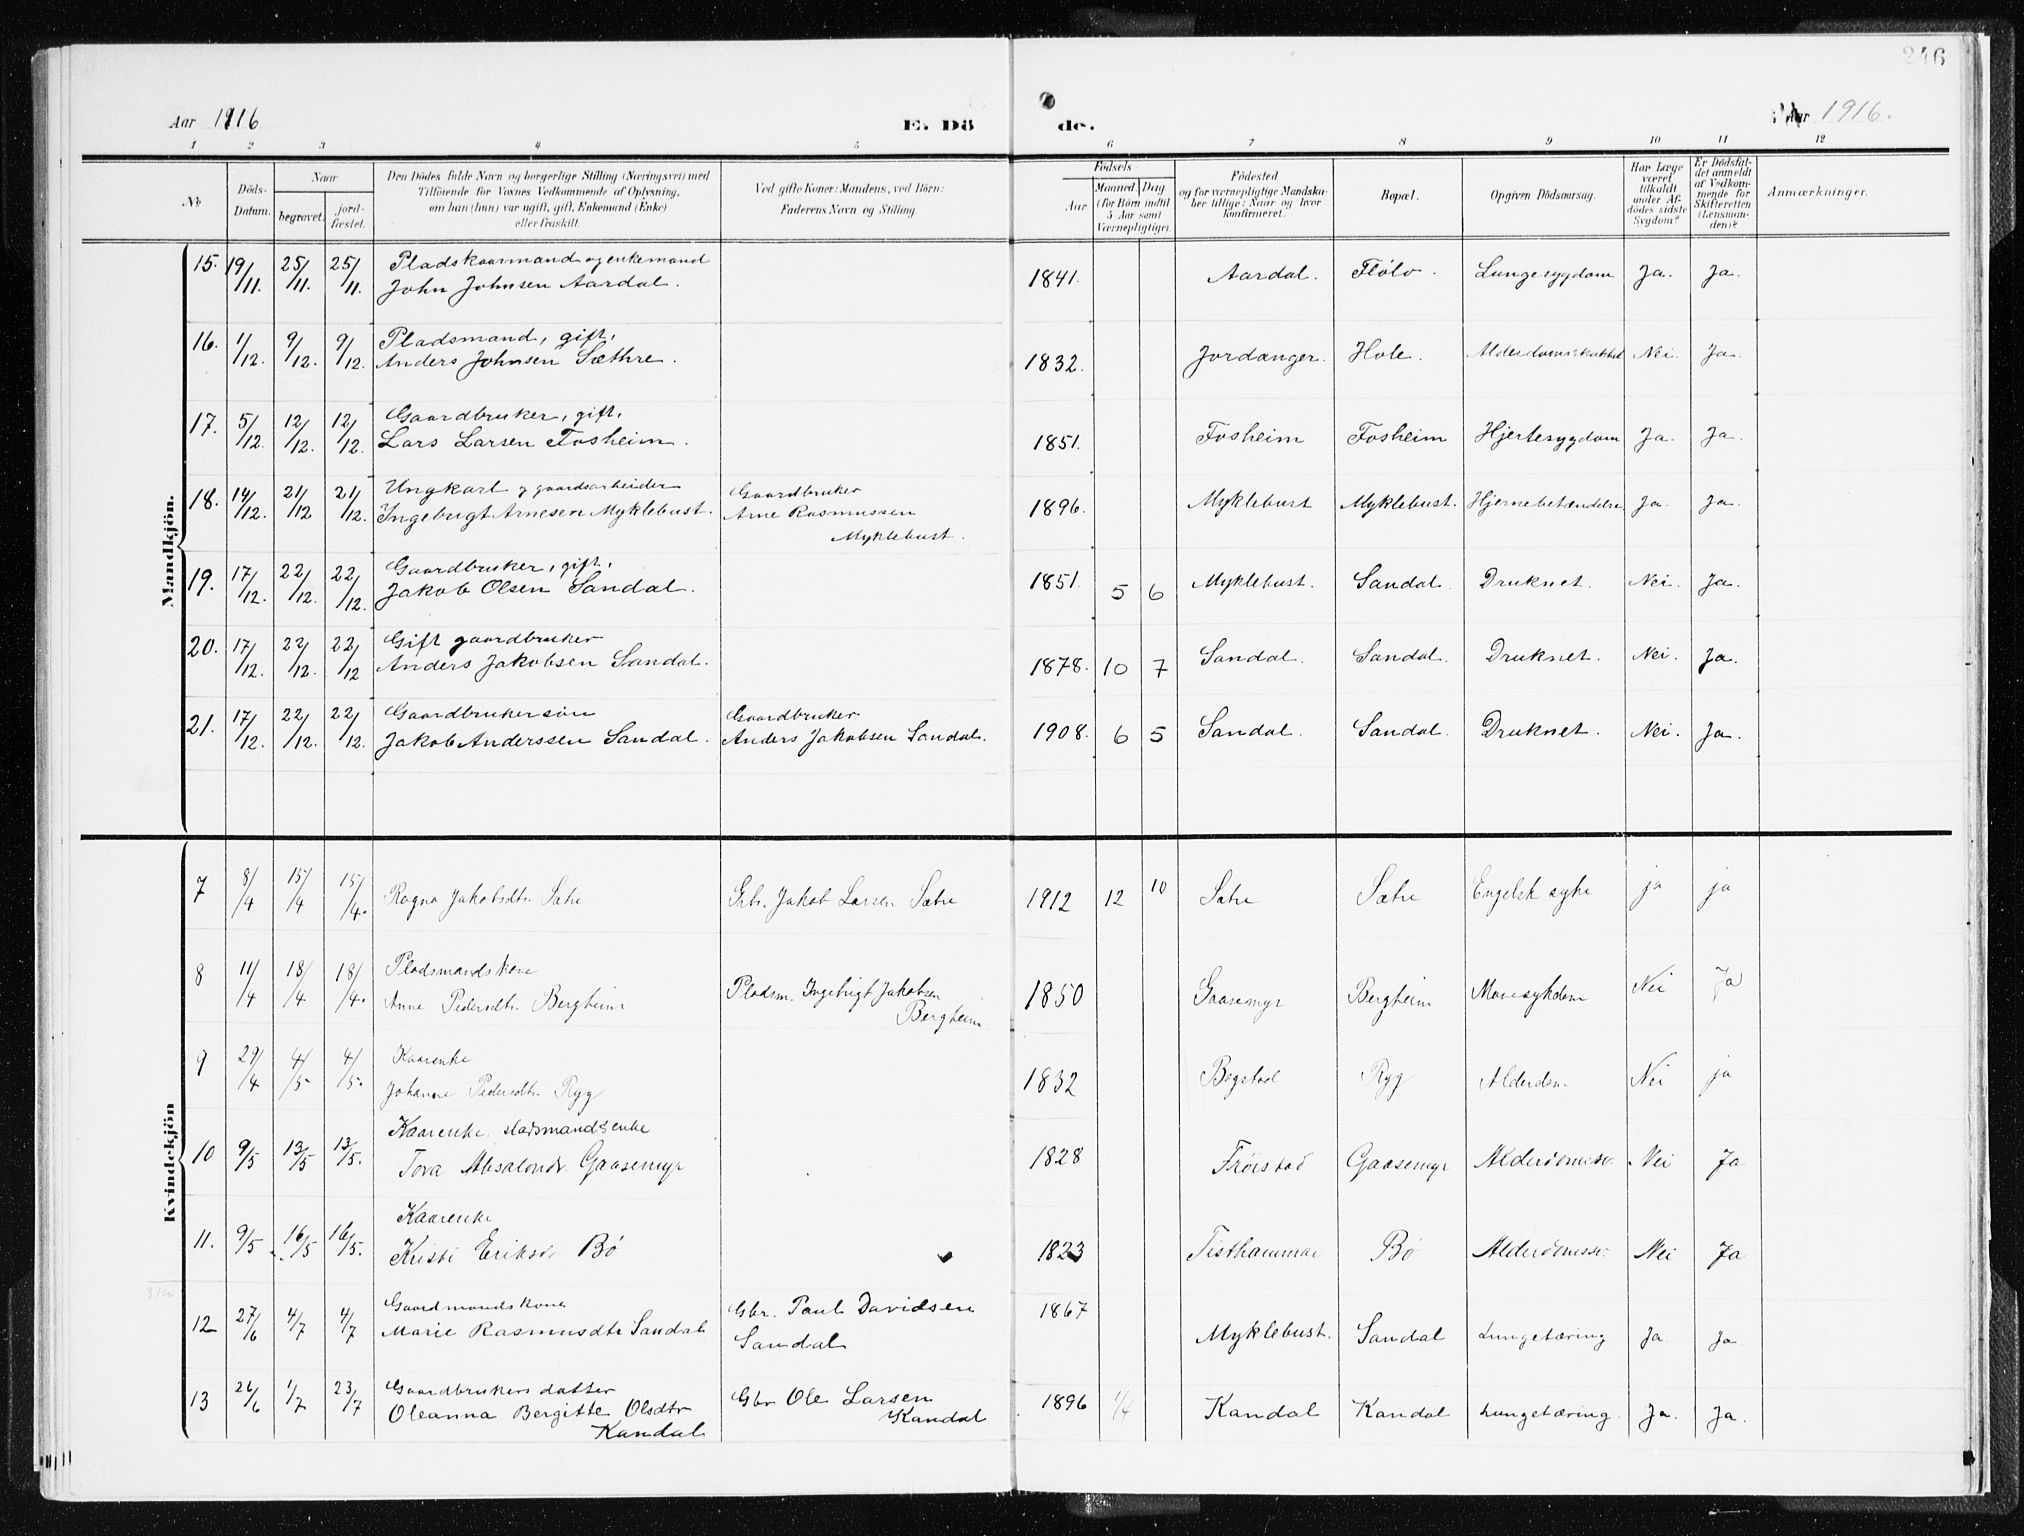 246
Aar 1916
E. Dö
de.
Aar 1916.
1 2 3 4 5 6 7 8 9 10 11 12
No
Döds-Datum.
Naar
begravet.
jord-fæstet.
Den Dödes fulde Navn og borgerlige Stilling (Næringsvei) med
Tilföiende for Voxnes Vedkommende af Oplysning,
om han (hun) var ugift, gift, Enkemand (Enke)
eller fraskilt.
Ved gifte Koner: Mandens, ved Börn:
Faderens Navn og Stilling.
Födsels-
Aar
Maaned. Dag
(for Börn indtil
5 Aar samt
Værnepligtige).
Födested
og for værnepligtige Mandska-
ber tillige: Naar og hvor
konfirmeret.
Bopæl.
Opgiven Dödsaarsag.
Har Læge
været
tilkaldt
under Af-
dödes sidste
Sygdom?
Er Dödsfal-
det anmeldt
af Vedkom-
mende for
Skifteretten
(Lensman-
den)?
Anmærkninger.
Mandkjön.
15. 19/11. 25/11. 25/11. Pladskaarmand og enkemand
John Johnsen Aardal. 1841. Aardal. Flölo. Lungesygdom Ja. Ja.
16. 1/12. 9/12. 9/12. Pladsmand, gift,
Anders Johnsen Sæthre. 1832. Jordanger. Hole. Nei. Ja.
17. 5/12. 12/12. 12/12. Gaardbruker, gift,
Lars Larsen Fosheim. 1851. Fosheim Fosheim Hjertesygdom Ja. Ja.
18. 14/12. 21/12 21/12. Ungkarl og gaardsarbeider
Ingebrigt Arnesen Myklebust. Gaardbruker
Arne Rasmussen
Myklebust. 1896. Myklebust Myklebust. Hjernebetændelse Ja. Ja.
19. 17/12. 22/12. 22/12. Gaardbruker, gift,
Jakob Olsen Sandal. 1851. 5 6 Myklebust. Sandal. Druknet. Nei. Ja.
20. 17/12. 22/12. 22/12 Gift gaardbruker
Anders Jakobsen Sandal. 1878. 10 7 Sandal. Sandal. Druknet. Nei. Ja.
21. 17/12. 22/12. 22/12. Gaardbrukersön
Jakob Anderssen Sandal. Gaardbruker
Anders Jakobsen Sandal. 1908. 6 5 Sandal. Sandal. Druknet. Nei. Ja.
Kvindekjön
7 8/4 15/4 15/4. Ragna Jakobsdtr. Sætre Grbr. Jakob Larsen Sætre 1912 12 10 Sætre Sætre Engelsk syke ja ja
8 11/4 18/4 18/4. Pladsmandskone
Anne Pedersdtr. Bergheim Pladsm. Ingebrigt Jakobsen
Bergheim 1850 Gaasemyr Bergheim Mavesykdom Nei Ja
9 29/4 4/5 4/5. Kaarenke
Johanne Pedersdtr. Ryg 1832 Bogstad Ryg Alderdom Nei ja
10 9/5 13/5 13/5. Kaarenke, pladsmandsenke
Tova Absalondr. Gaasemyr 1828 Fröistad Gaasemyr Alderdomssv. Nei Ja
11. 9/5 16/5 16/5. Kaarenke
Kristi Eriksdr Bö 1823 Tisthammar Bö Alderdomssv. Nei Ja
12 27/6 4/7 4/7 Gaardmandskone
Marie Rasmusdtr Sandal Gbr. Paul Davidsen
Sandal 1867 Myklebust. Sandal Lungetæring Ja. Ja
13 26/6 1/7 23/7 Gaardbrukers datter
Oleanna Bergitte Olsdtr
Kandal Gbr Ole Larsen
Kandal 1896 1/4 Kandal Kandal Lungetæring. Ja. Ja.